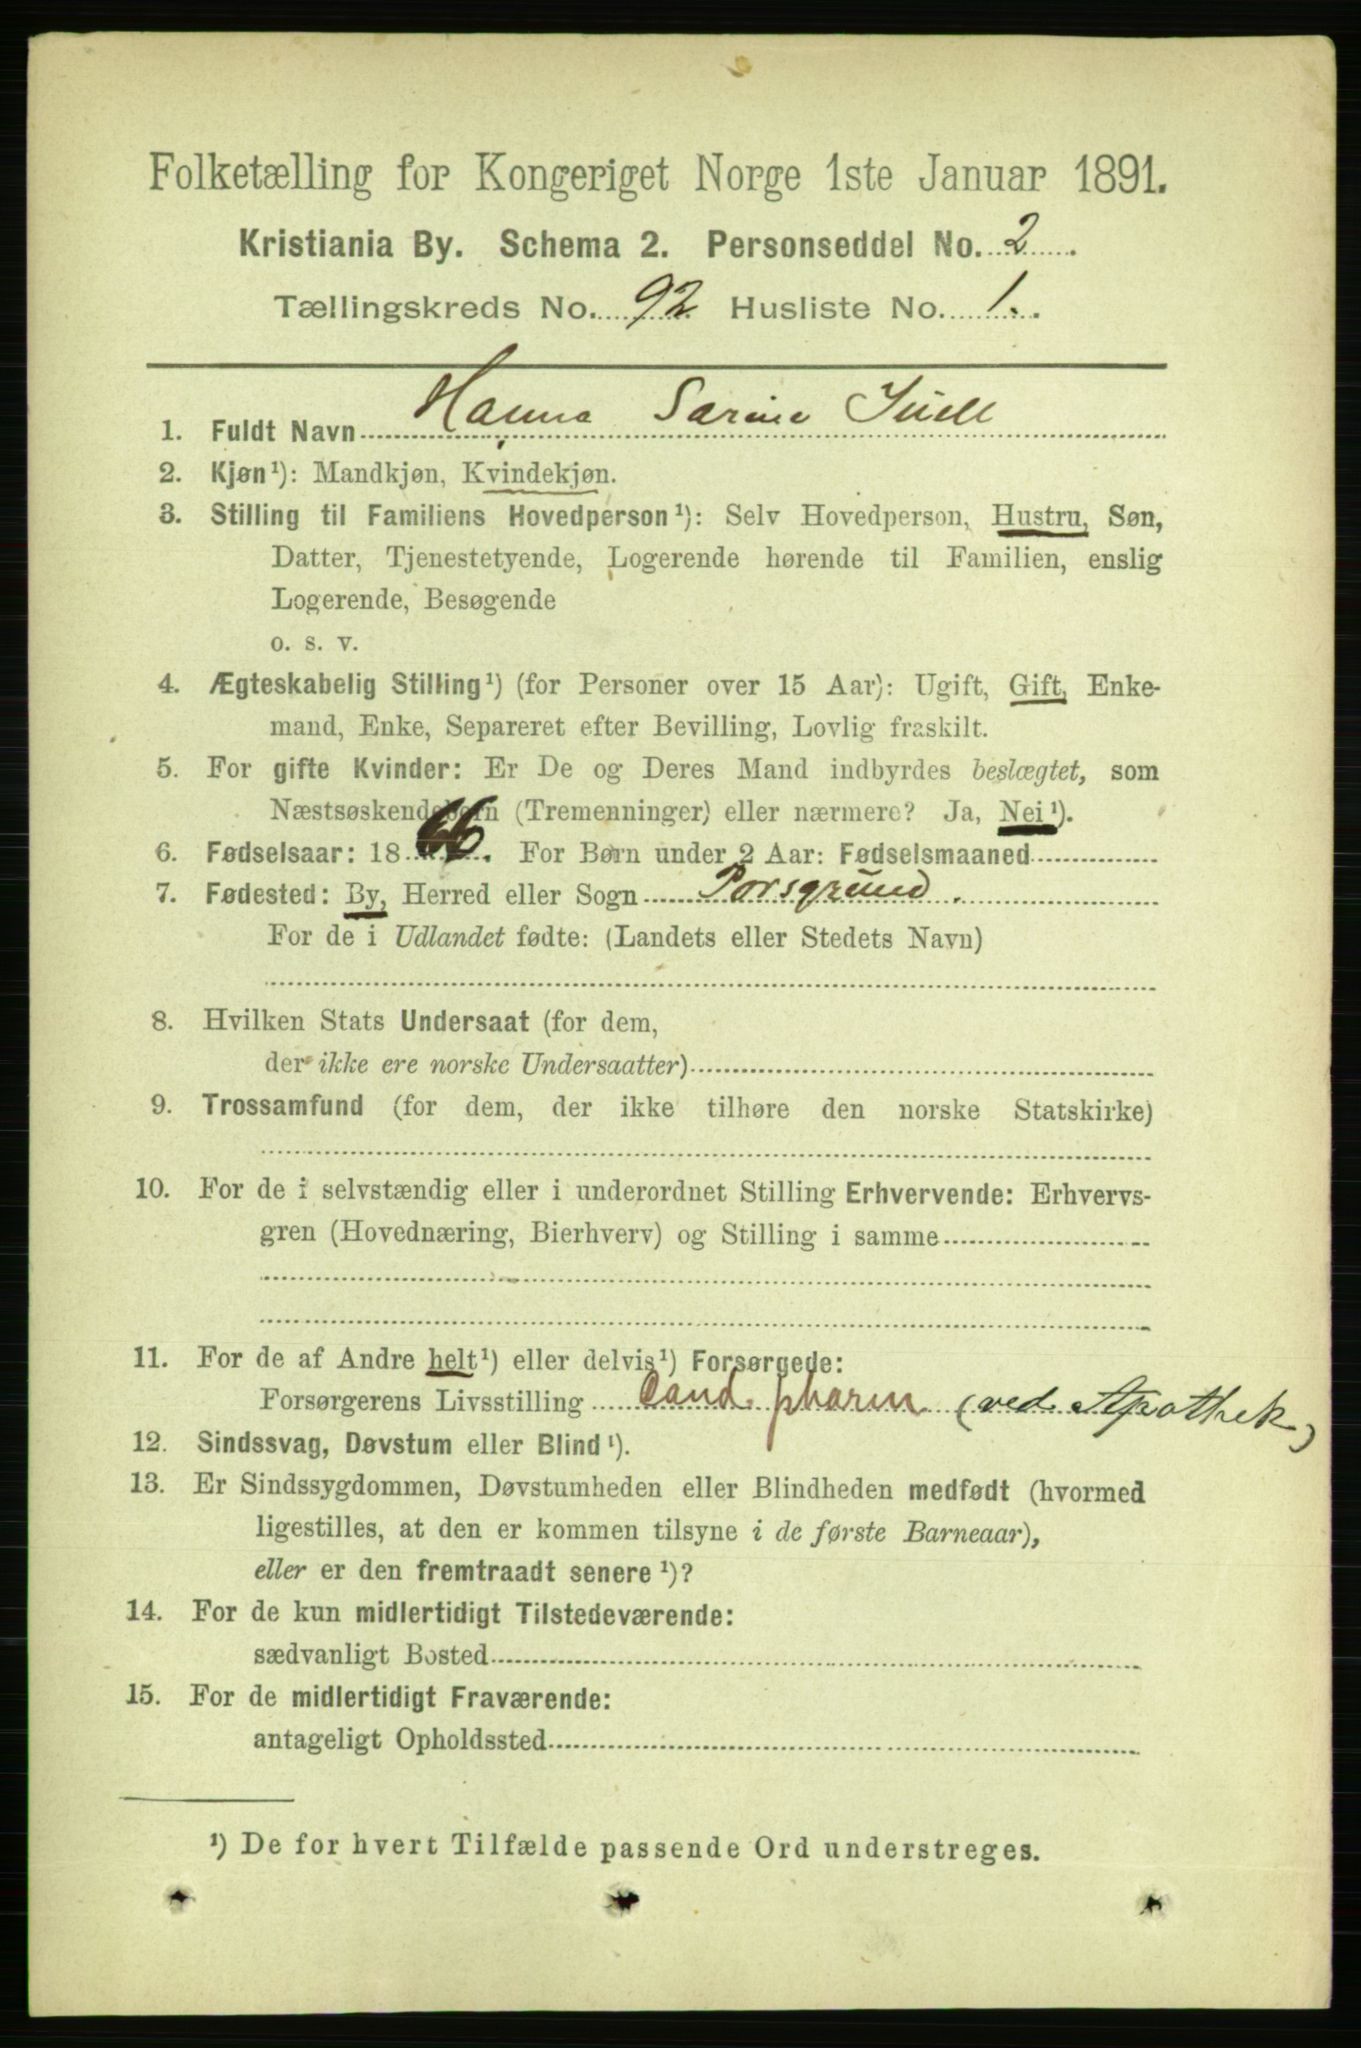 Folketælling for Kongeriget Norge 1ste Januar 1891.
Kristiania By. Schema 2. Personseddel No. 2
Tællingskreds No. 92 Husliste No. 1.
1. Fuldt Navn Hanna Sarine Juell
2. Kjøn¹): Mandkjøn, Kvindekjøn.
3. Stilling til Familiens Hovedperson¹): Selv Hovedperson, Hustru, Søn,
Datter, Tjenestetyende, Logerende hørende til Familien, enslig
Logerende, Besøgende
o. s. v.
4. Ægteskabelig Stilling¹) (for Personer over 15 Aar): Ugift, Gift, Enke-
mand, Enke, Separeret efter Bevilling, Lovlig fraskilt.
5. For gifte Kvinder: Er De og Deres Mand indbyrdes beslægtet, som
Næstsøskendebørn (Tremenninger) eller nærmere? Ja, Nei¹).
6. Fødselsaar: 1866. For Børn under 2 Aar: Fødselsmaaned
7. Fødested: By, Herred eller Sogn Porsgrund.
For de i Udlandet fødte: (Landets eller Stedets Navn)
8. Hvilken Stats Undersaat (for dem,
der ikke ere norske Undersaatter)
9. Trossamfund (for dem, der ikke tilhøre den norske Statskirke)
10. For de i selvstændig eller i underordnet Stilling Erhvervende: Erhvervs-
gren (Hovednæring, Bierhverv) og Stilling i samme
11. For de af Andre helt¹) eller delvis¹) Forsørgede:
Forsørgerens Livsstilling Cand. pharm (ved Apothek)
12. Sindssvag, Døvstum eller Blind¹).
13. Er Sindssygdommen, Døvstumheden eller Blindheden medfødt (hvormed
ligestilles, at den er kommen tilsyne i de første Barneaar),
eller er den fremtraadt senere¹)?
14. For de kun midlertidigt Tilstedeværende:
sædvanligt Bosted
15. For de midlertidigt Fraværende:
antageligt Opholdssted
¹) De for hvert Tilfælde passende Ord understreges.